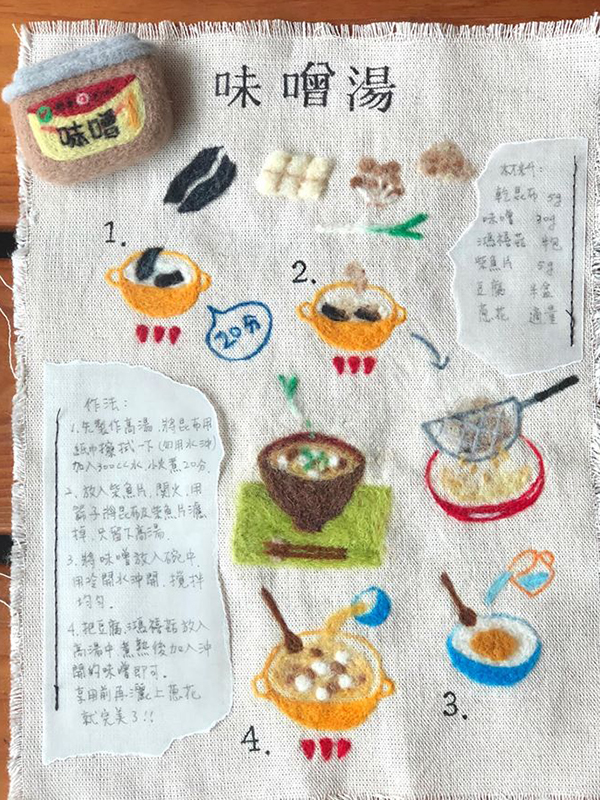 味噌湯
味噌
材料:
乾昆布 5g
味噌 30g
鴻禧菇 半包
柴魚片 5g
豆腐 半盒
蔥花 適量
1.
20分
2.
作法:
1.先製作高湯,將昆布用
紙巾擦拭一下(勿用水沖)
加入300cc水,小火煮20分.
2.放入柴魚片,關火,用
篩子將昆布及柴魚片濾
掉,只留下高湯.
3.將味噌放入碗中,
用冷開水沖開,攪拌
均勻.
4.把豆腐、鴻禧菇放入
高湯中煮熟後加入沖
開的味噌即可.
享用前再灑上蔥花
就完美了!!
3.
4.